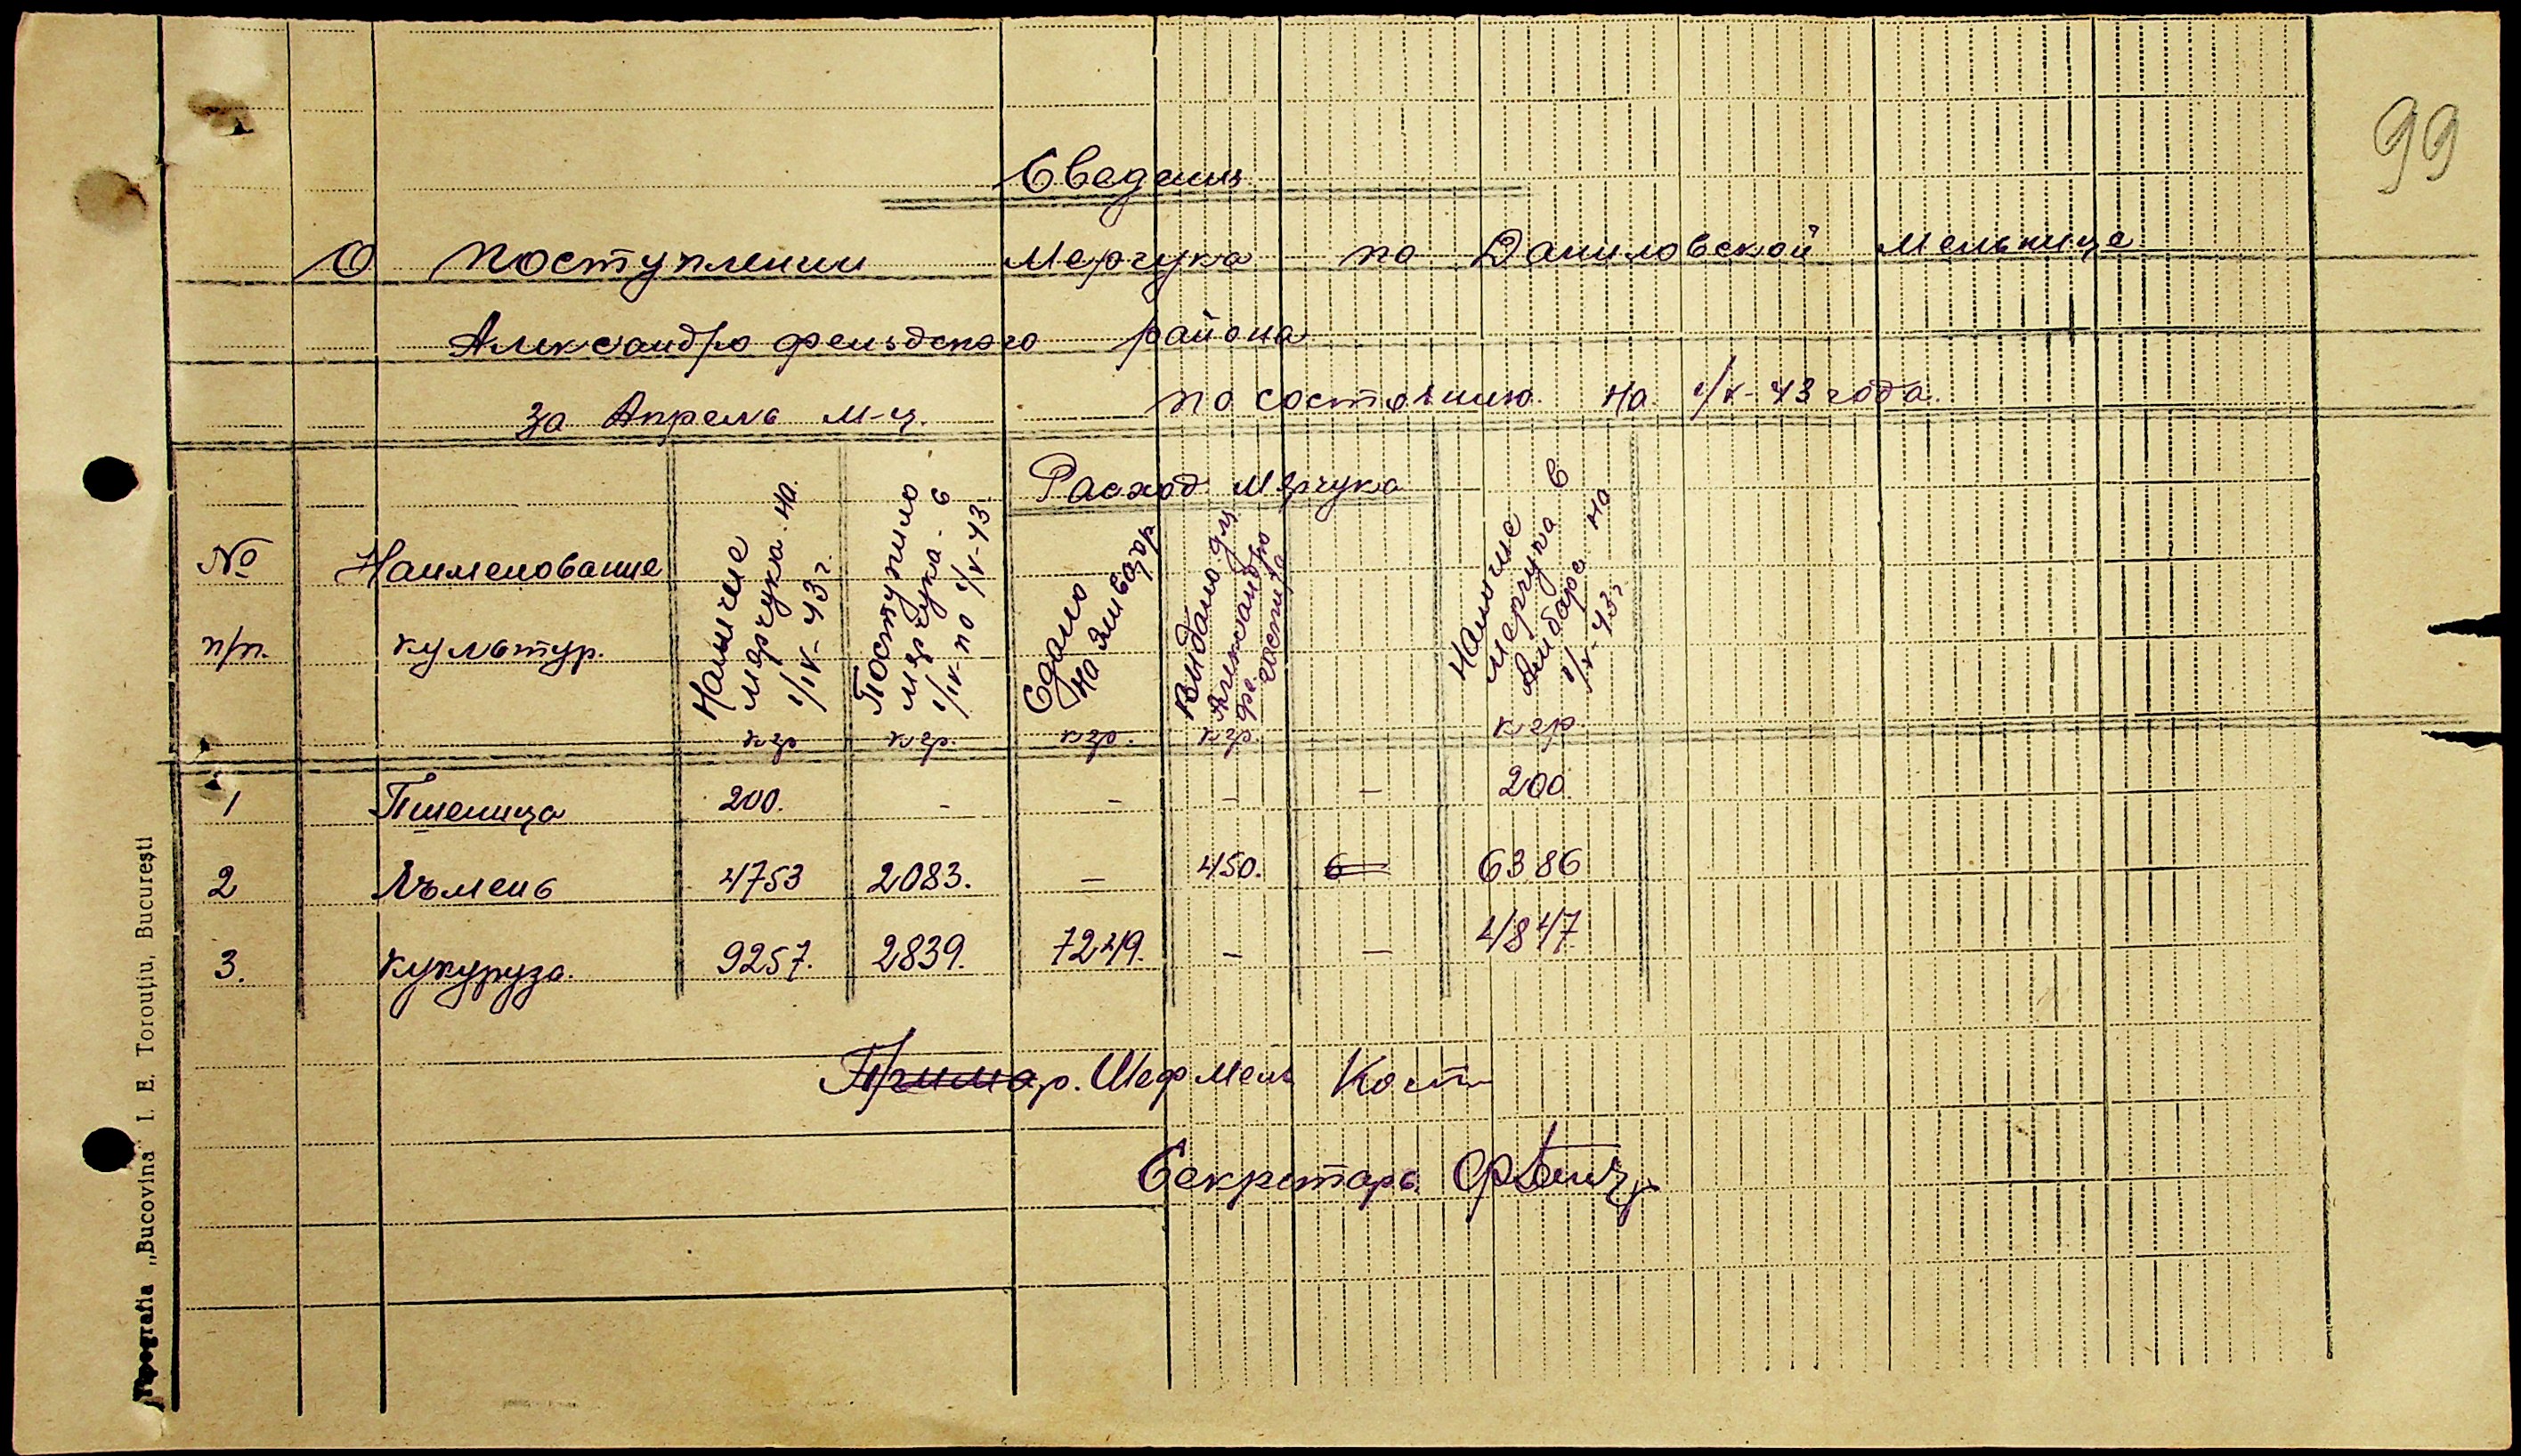 99
Сведения
О поступлении Мерчука по Даниловской Мельнице
Александрофельдского района
за Апрель м-ц. по состоянию на 1/V-43 года.
№ п/п.
Наименование культур.
Наличие мерчука на 1/IV-43 г. кгр
Поступило мерчука с 1/IV по 1/V-43 кгр.
Расход мерчука
Сдано на кгр.
Выдано кгр.
Наличие мерчука в Амбаре на 1/V-43 г. кгр.
1 Пшеница 200. - - - - 200.
2 Ячмень 4753 2083. - 450. 6386
3. Кукуруза. 9257. 2839. 7249. - - 4847.
Примар. Шеф мель
Секретарь
Tipografia „Bucovina" I. E. Torouțiu, București